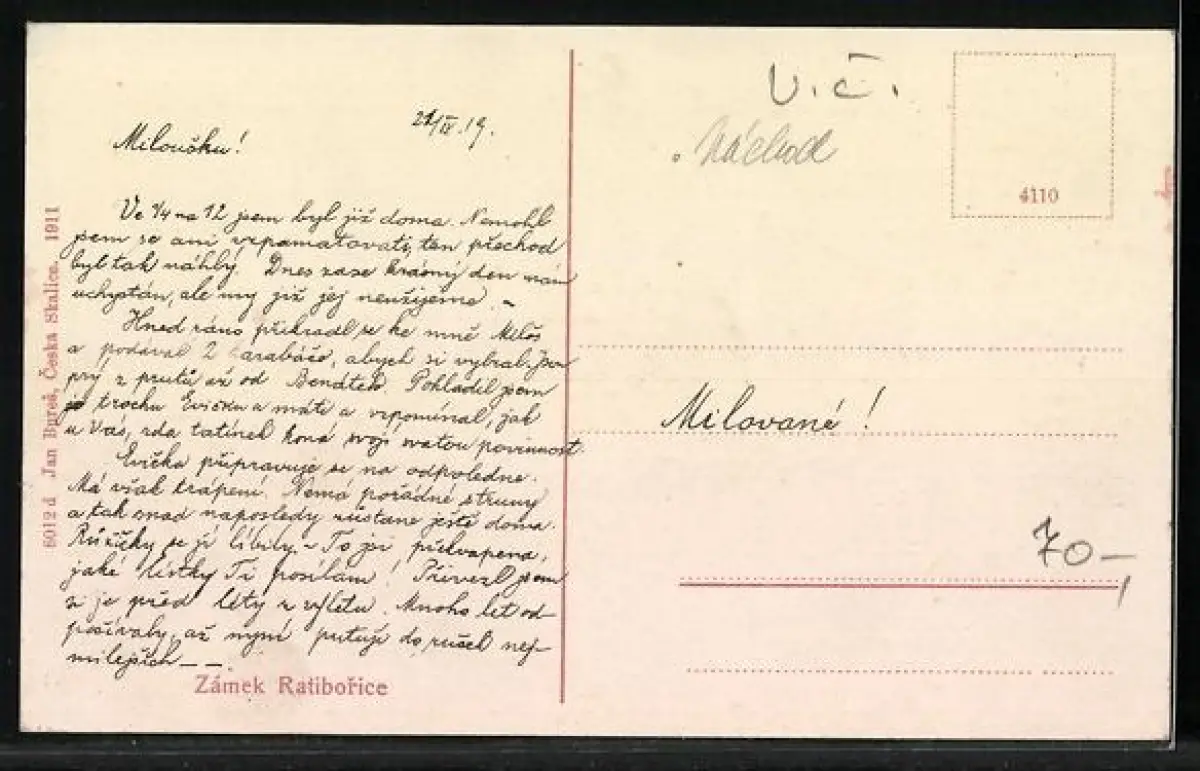 21/IV.19.
Miloušku!
Ve 1/4 na 12 jsem byl již doma. Nemohl
jsem se ani vzpamatovati, ten přechod
byl tak náhlý. Dnes zase krásný den nám
uchystán, ale my již jej neužijeme. –
Hned ráno přikradl se ke mně Miloš
a podával 2 karabáče, abych si vybral. Jsou
prý z prutů až od Benátek. Pohladil jsem
trochu Evičku a máti a vzpomínal, jak
u Vás, zda tatínek koná svoji svatou povinnost.
Evička připravuje se na odpoledne.
Má však trápení. Nemá pořádné struny
a tak snad naposledy zůstane ještě doma.
Růžičky se jí líbily – To jsi překvapena,
jaké lístky Ti posílám! Přivezl jsem
si je před léty z výletu. Mnoho let od-
počívaly, až nyní putují do ruček nej-
milejších – –.
Zámek Ratibořice
6012 d Jan Bureš, Česka Skalice. 1911
V.Č.
Náchod
4110
Milované!
70,–